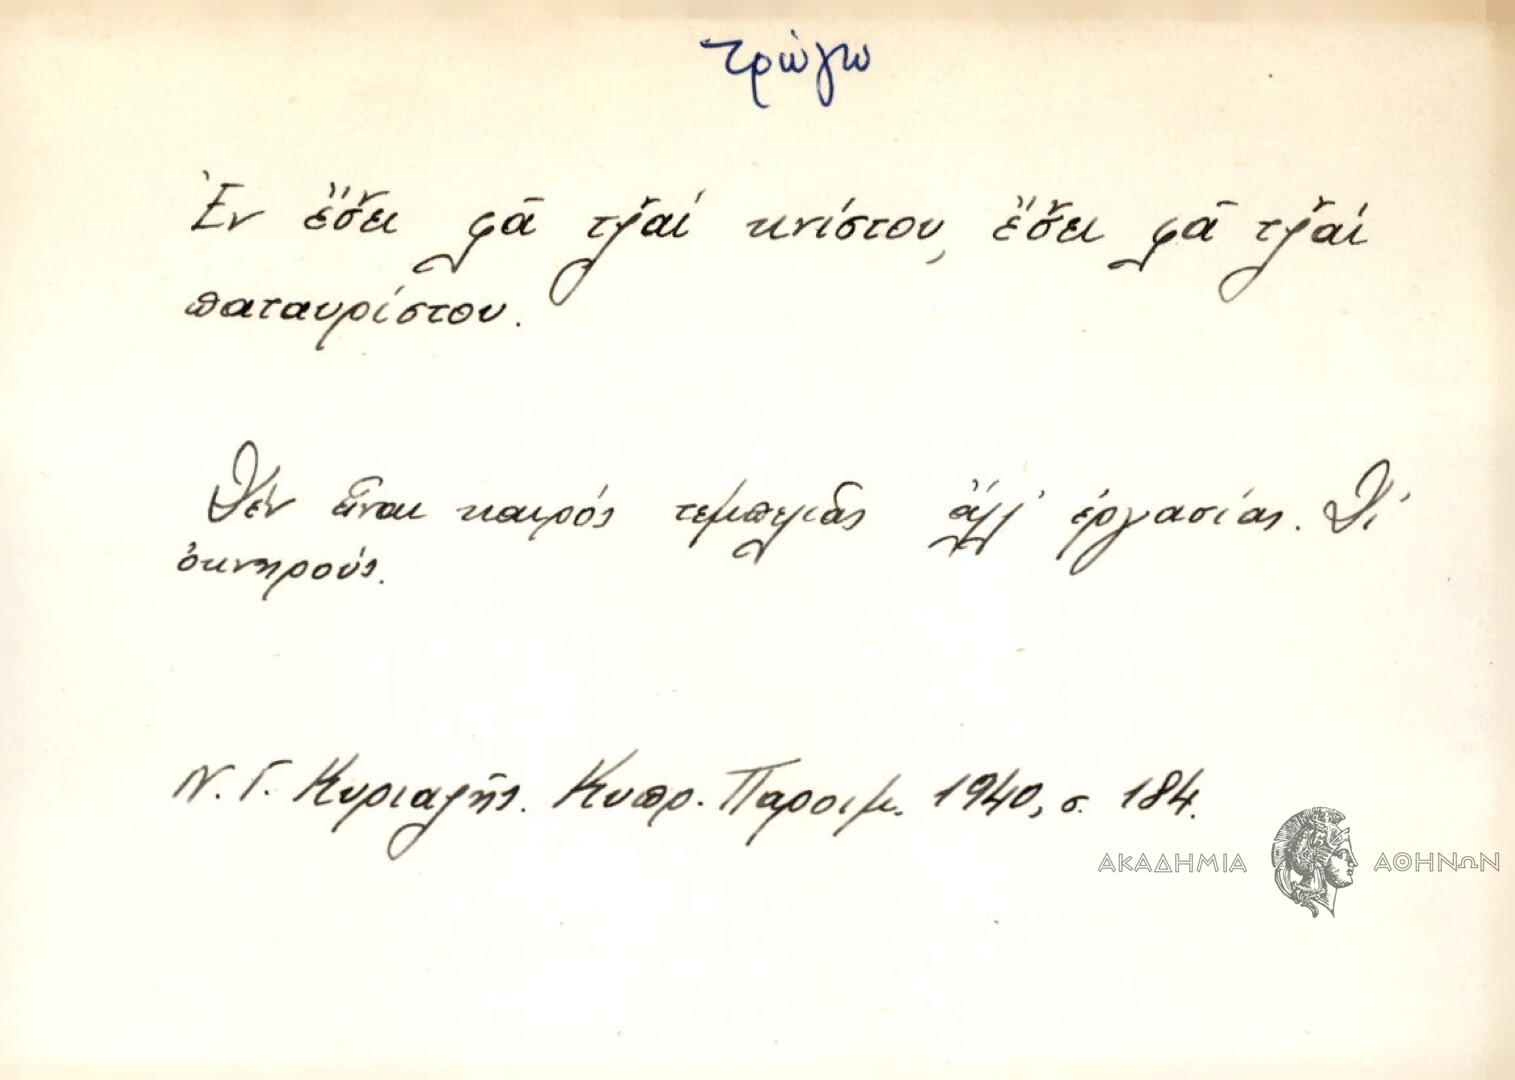 τρώγω
Ἐν ἔσ̌ει φᾶ τζ̌αί κνίστου, ἔσ̌ει φᾶ τζ̌αί
παταυρίστου.
Δέν εἶναι καιρός τεμπελιᾶς ἀλλ' ἐργασίας. Δι'
ὀκνηρούς.
Ν. Γ. Κυριαζῆς. Κυπρ. Παροιμ. 1940, σ. 184.
ΑΚΑΔΗΜΙΑ ΑΘΗΝΩΝ